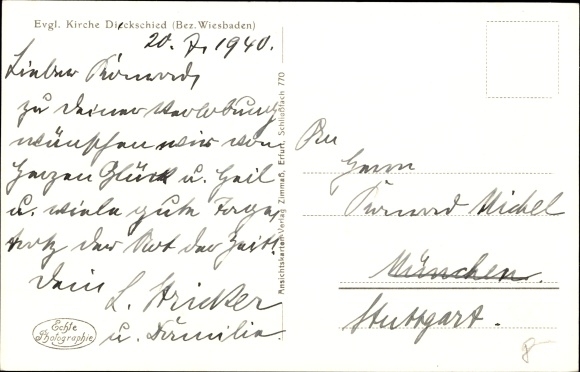 Evgl. Kirche Dickschied (Bez. Wiesbaden)
20. 7. 1940.
Lieber Konrad,
zu Deiner Verlobung
wünschen wir von
Herzen Glück u. Heil
u. viele gute Tage,
trotz der Not der Zeit!
Dein
L. Stricker
u. Familie.
Echte
Photographie
Ansichtskarten-Verlag Zimmaß, Erfurt, Schließfach 770
An
Herrn
Konrad Michel
München.
Stuttgart.
8-